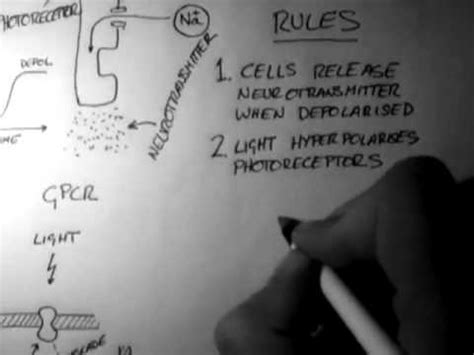 PHOTORECEPTOR
Na
RULES
DEPOL.
NEUROTRANSMITTER
1. CELLS RELEASE
NEUROTRANSMITTER
WHEN DEPOLARISED
2. LIGHT HYPERPOLARISES
PHOTORECEPTORS
GPCR
LIGHT